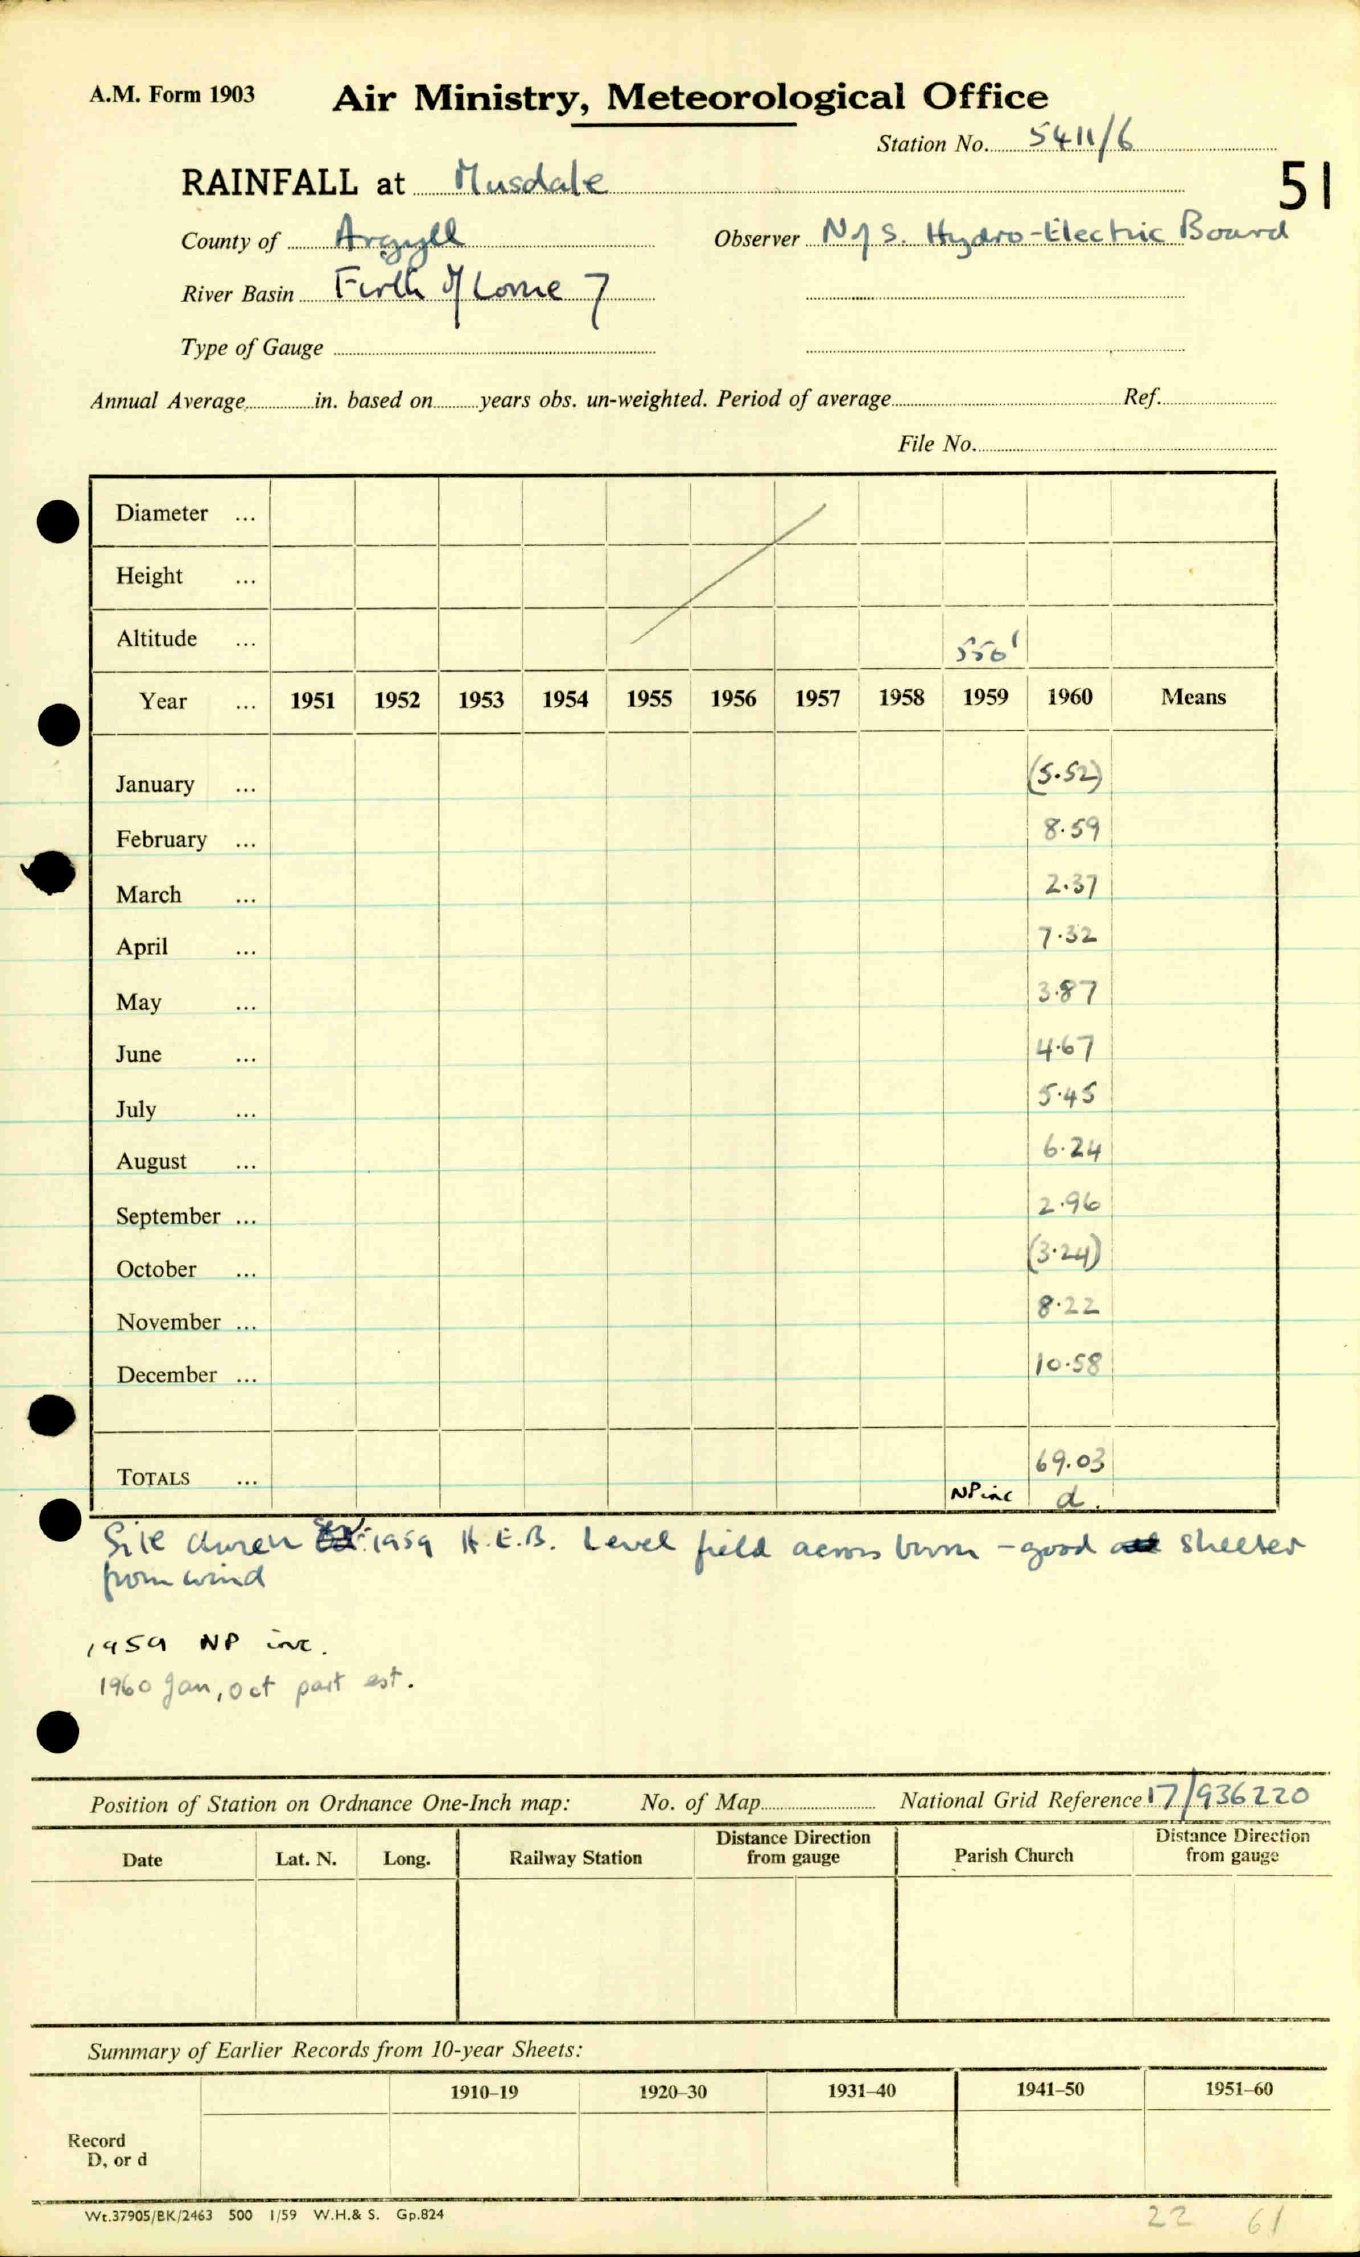 A.M. Form 1903 Air Ministry, Meteorological Office
Station No. 5411/6
RAINFALL at Musdale 51
County of Argyll Observer N of S. Hydro-Electric Board
River Basin Firth of Lorne 7
Type of Gauge
Annual Average in. based on years obs. un-weighted. Period of average Ref.
File No.
Diameter ...
Height ...
Altitude ... 550'
Year ... 1951 1952 1953 1954 1955 1956 1957 1958 1959 1960 Means
January ... (5.52)
February ... 8.59
March ... 2.37
April ... 7.32
May ... 3.87
June ... 4.67
July ... 5.45
August ... 6.24
September ... 2.96
October ... (3.24)
November ... 8.22
December ... 10.58
TOTALS ... 69.03
NP inc d.
Site chosen 1959 H.E.B. Level field across burn - good shelter
from wind
1959 NP inc.
1960 Jan, Oct part est.
Position of Station on Ordnance One-Inch map: No. of Map National Grid Reference 17/936220
Date Lat. N. Long. Railway Station Distance Direction from gauge Parish Church Distance Direction from gauge
Summary of Earlier Records from 10-year Sheets:
1910–19 1920–30 1931–40 1941–50 1951–60
Record
D, or d
Wt.37905/BK/2463 500 1/59 W.H.& S. Gp.824
22 61